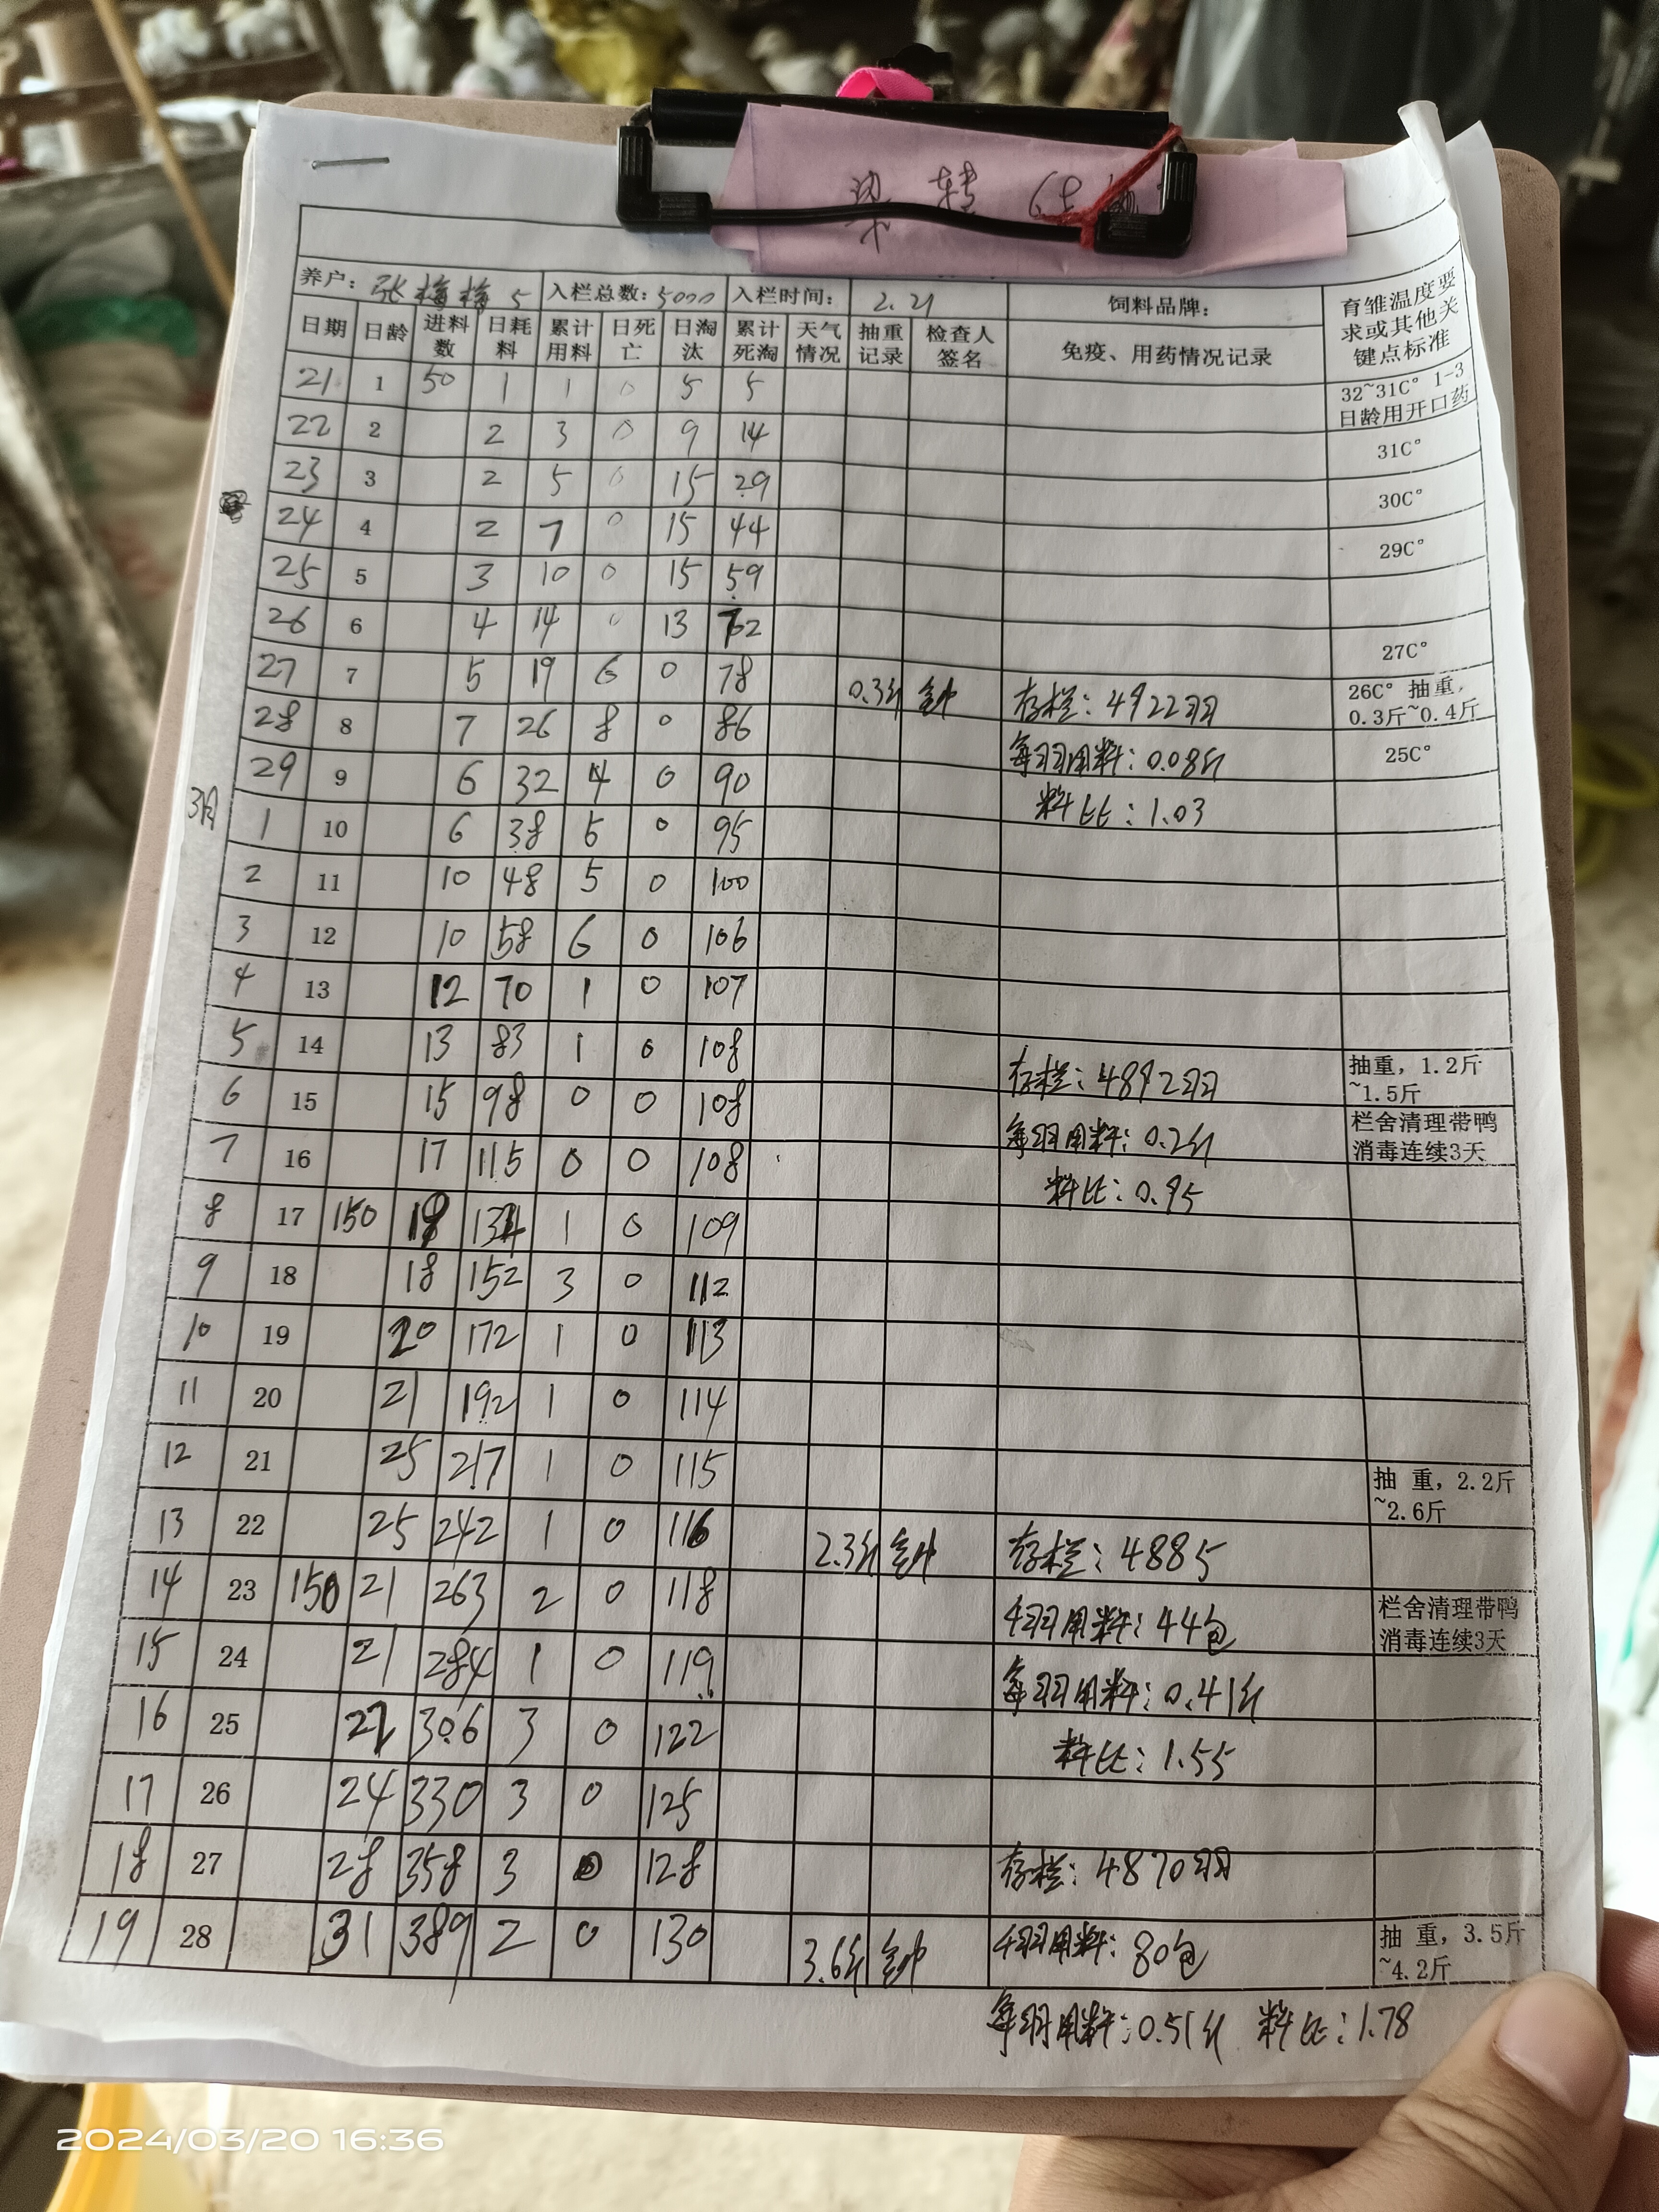 养户: 张梅梅 5 入栏总数: 5000 入栏时间: 2.21 饲料品牌: 育雏温度要求或其他关键点标准
日期 日龄 进料数 日耗料 累计用料 日死亡 日淘汰 累计死淘 天气情况 抽重记录 检查人签名 免疫、用药情况记录
21 1 50 1 1 0 5 5 32~31C° 1-3日龄用开口药
22 2 2 3 0 9 14 31C°
23 3 2 5 0 15 29 30C°
24 4 2 7 0 15 44 29C°
25 5 3 10 0 15 59
26 6 4 14 0 13 72 27C°
27 7 5 19 6 0 78 0.3斤 存栏: 4922羽 26C° 抽重, 0.3斤~0.4斤
28 8 7 26 8 0 86 每羽用料: 0.08斤 25C°
29 9 6 32 4 0 90 料比: 1.03
3月 1 10 6 38 5 0 95
2 11 10 48 5 0 100
3 12 10 58 6 0 106
4 13 12 70 1 0 107
5 14 13 83 1 0 108 存栏: 4892羽 抽重, 1.2斤~1.5斤
6 15 15 98 0 0 108 每羽用料: 0.2斤 栏舍清理带鸭消毒连续3天
7 16 17 115 0 0 108 料比: 0.95
8 17 150 134 1 0 109
9 18 18 152 3 0 112
10 19 20 172 1 0 113
11 20 21 192 1 0 114
12 21 25 217 1 0 115 抽 重, 2.2斤~2.6斤
13 22 25 242 1 0 116 2.3斤 存栏: 4885
14 23 150 21 263 2 0 118 4羽用料: 44包 栏舍清理带鸭消毒连续3天
15 24 21 284 1 0 119 每羽用料: 0.41斤
16 25 22 306 3 0 122 料比: 1.55
17 26 24 330 3 0 125
18 27 28 358 3 0 128 存栏: 4870羽
19 28 31 389 2 0 130 3.6斤 4羽用料: 80包 抽 重, 3.5斤~4.2斤
每羽用料: 0.51斤 料比: 1.78
2024/03/20 16:36